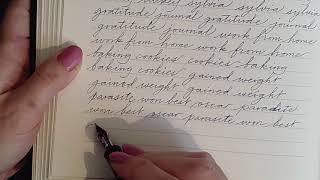 sylvia sylvia sylvia
gratitude journal gratitude journal
gratitude journal work from home
work from home work from home
baking cookies cookies baking
baking cookies gained weight
gained weight gained weight
parasite won best oscar parasite
won best oscar parasite won best